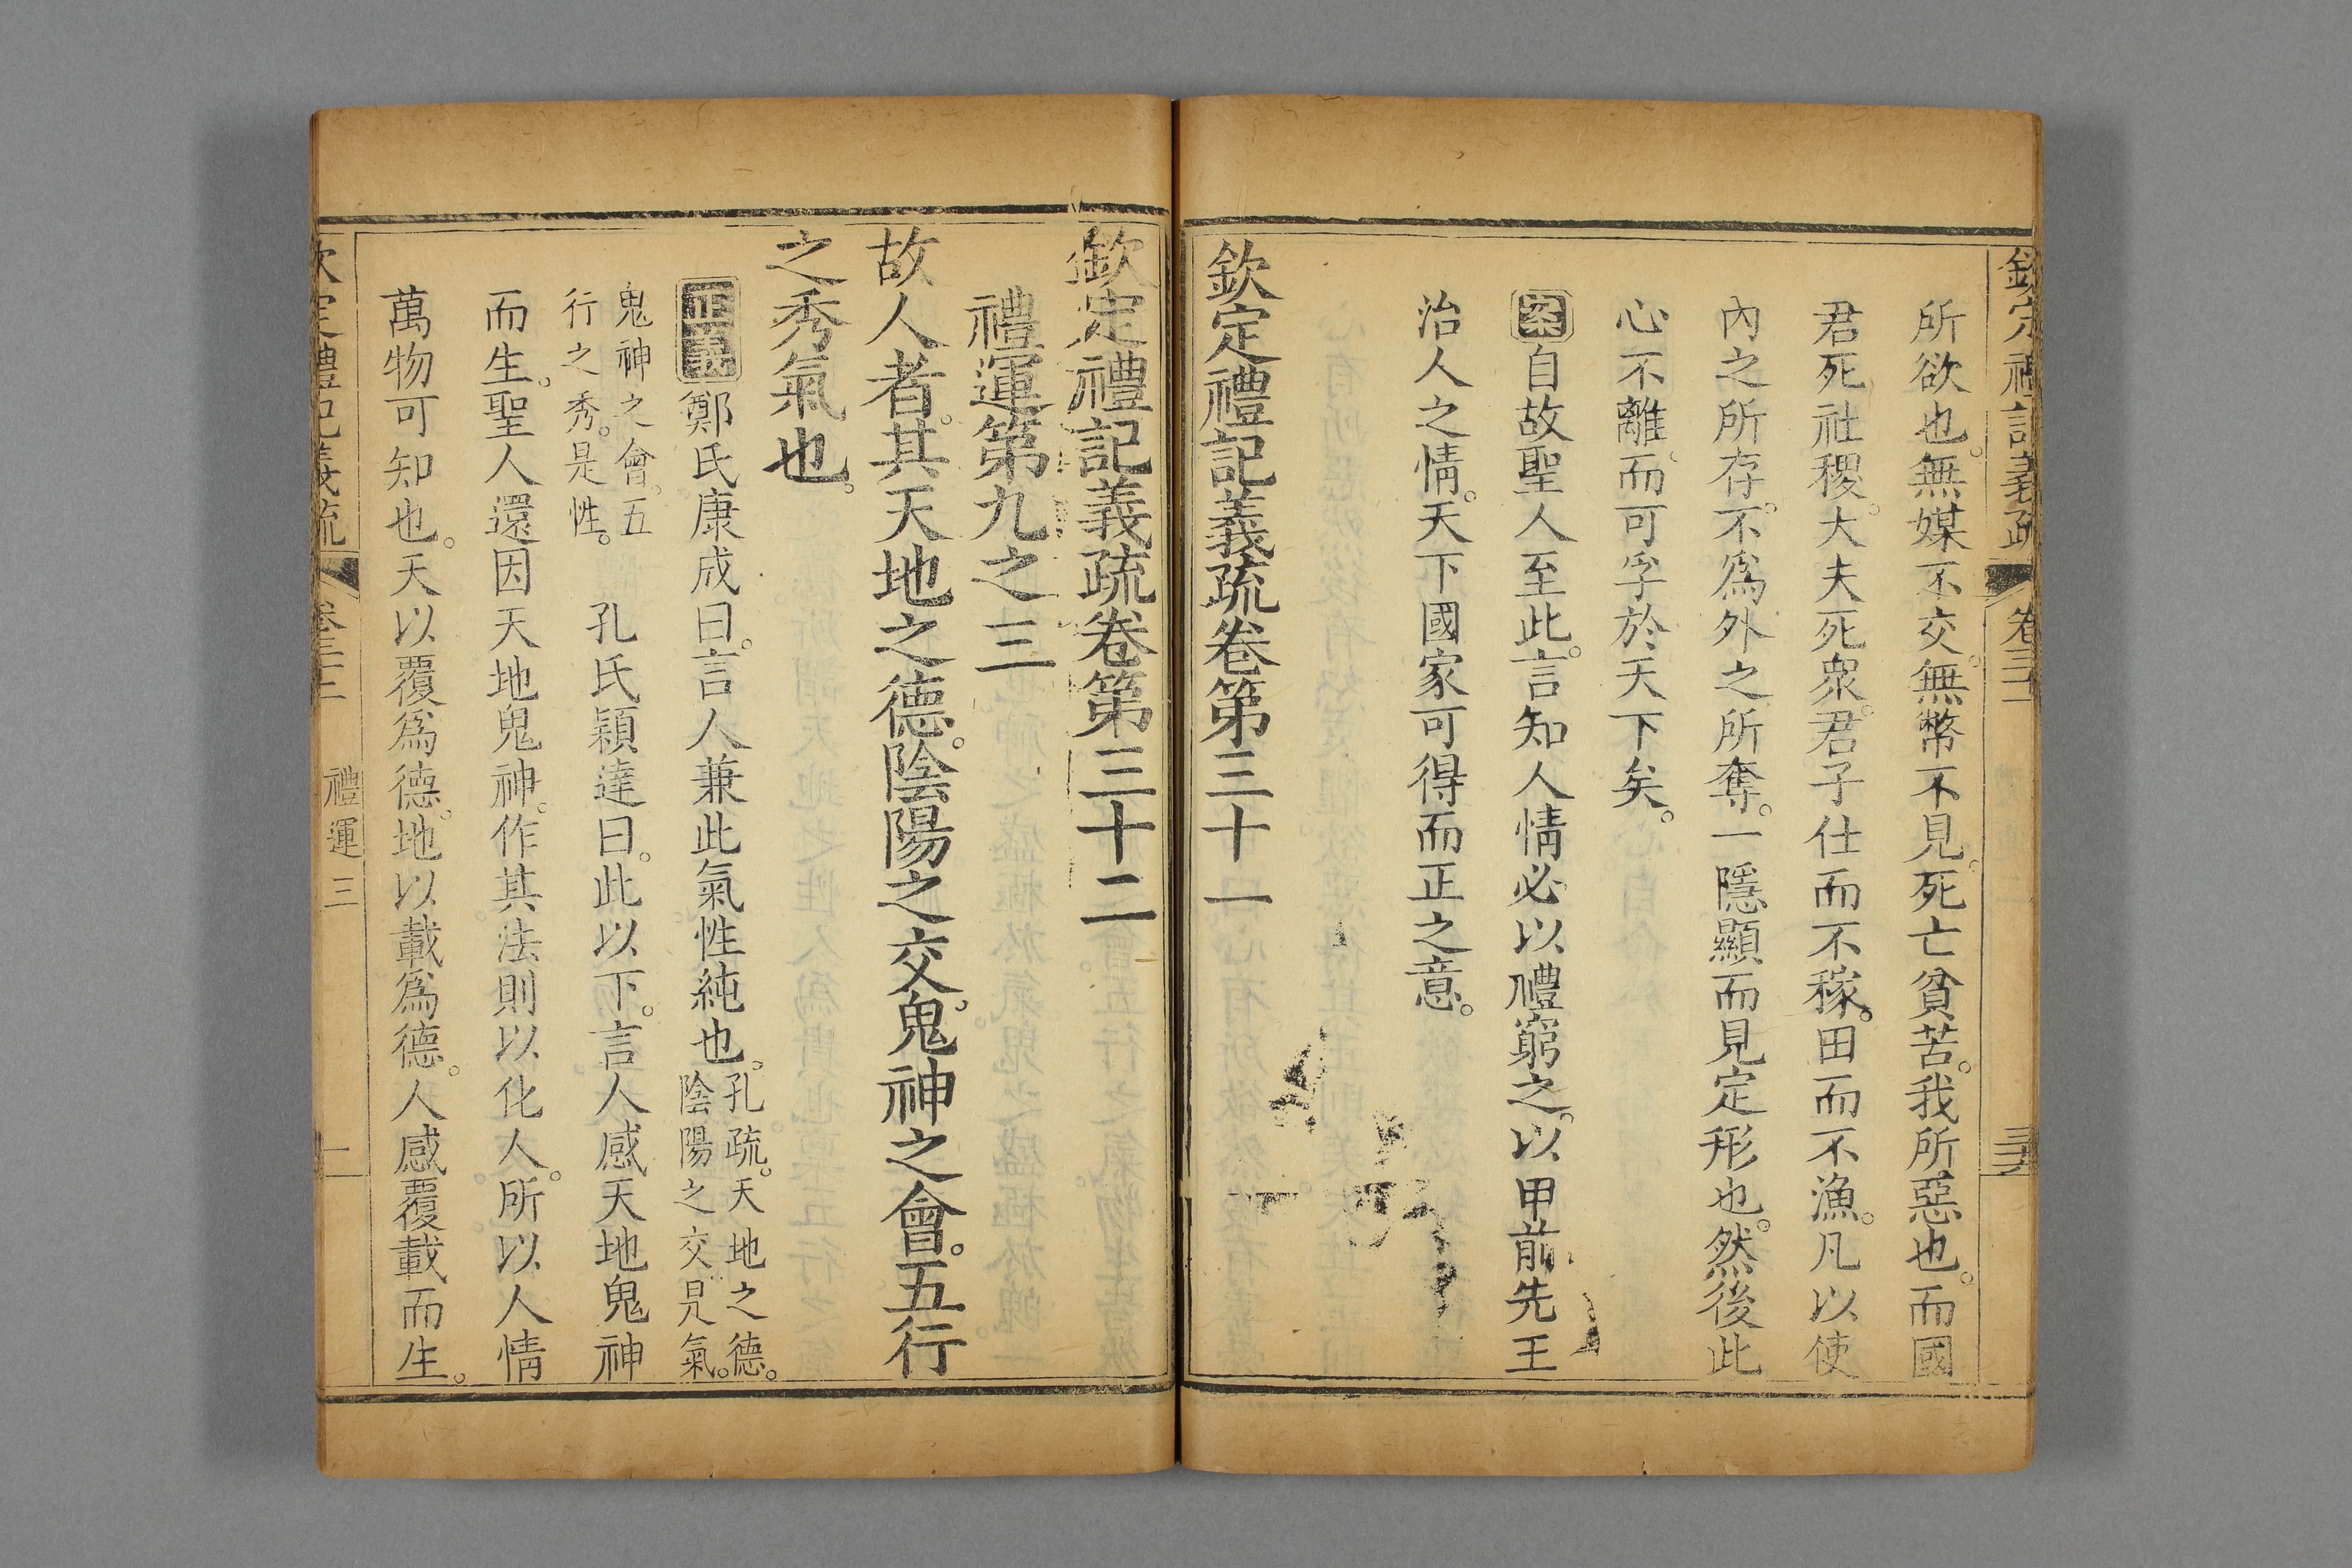 欽定禮記義疏 卷三十一
所欲也。無媒不交。無幣不見。死亡貧苦。我所惡也。而國
君死社稷。大夫死衆。君子仕而不稼。田而不漁。凡以使
內之所存。不爲外之所奪。一隱顯而見定形也。然後此
心不離。而可孚於天下矣。
案自故聖人至此。言知人情必以禮窮之。以申前先王
治人之情。天下國家可得而正之意。
欽定禮記義疏卷第三十一
欽定禮記義疏卷第三十二
禮運第九之三
故人者。其天地之德。陰陽之交。鬼神之會。五行
之秀氣也。
正義鄭氏康成曰。言人兼此氣性純也。孔疏。天地之德。
陰陽之交是氣。
鬼神之會。五
行之秀。是性。
孔氏穎達曰。此以下。言人感天地鬼神
而生。聖人還因天地鬼神。作其法則以化人。所以人情
萬物可知也。天以覆爲德。地以載爲德。人感覆載而生。
欽定禮記義疏 卷三十二 禮運三 一